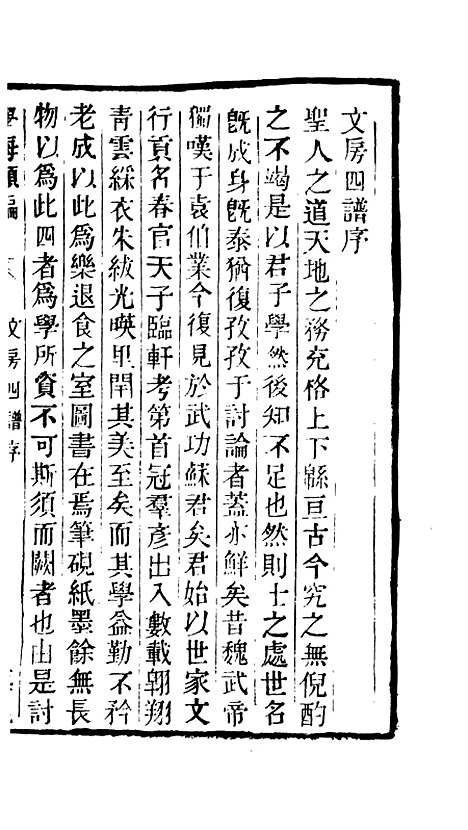 文房四譜序
聖人之道天地之務充格上下緜亘古今究之無倪酌
之不竭是以君子學然後知不足也然則士之處世名
既成身既泰猶復孜孜于討論者蓋亦鮮矣昔魏武帝
獨嘆于袁伯業今復見於武功蘇君矣君始以世家文
行貢名春官天子臨軒考第首冠羣彥出入數載翱翔
青雲綵衣朱紱光暎里閈其美至矣而其學益勤不矜
老成以此爲樂退食之室圖書在焉筆硯紙墨餘無長
物以爲此四者爲學所資不可斯須而闕者也由是討
學海類編 文房四譜序